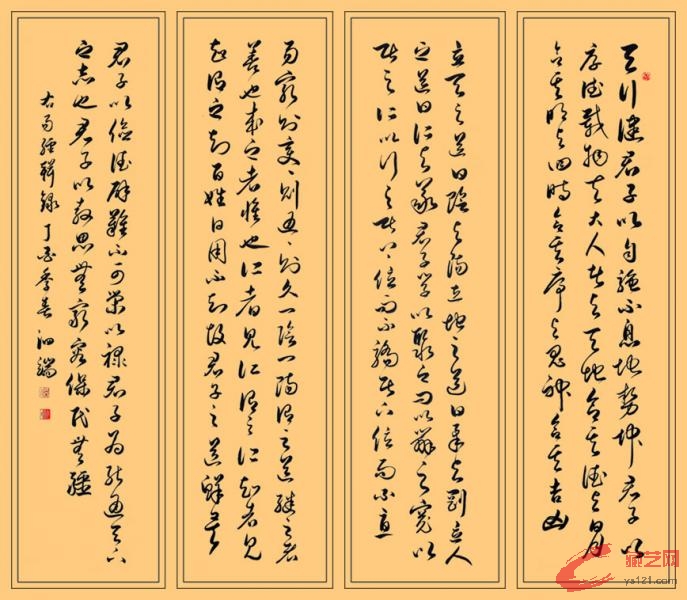 天行健君子以自强不息地势坤君子以
厚德載物夫大人者与天地合其德与日月
合其明与四時合其序与鬼神合其吉凶
立天之道曰陰与陽立地之道曰柔与剛立人
之道曰仁与義君子学以聚之問以辯之寬以
居之仁以行之居上位而不驕居下位而不憂
易窮则變〻则通〻则久一陰一陽謂之道繼之者
善也成之者性也仁者見仁謂之仁知者見
知謂之知百姓日用不知故君子之道鮮矣
君子以儉德辟難不可榮以禄君子為能通天下
之志也君子以教思無窮容保民無疆
右易經輯錄丁酉季春
藏艺网
ys121.com